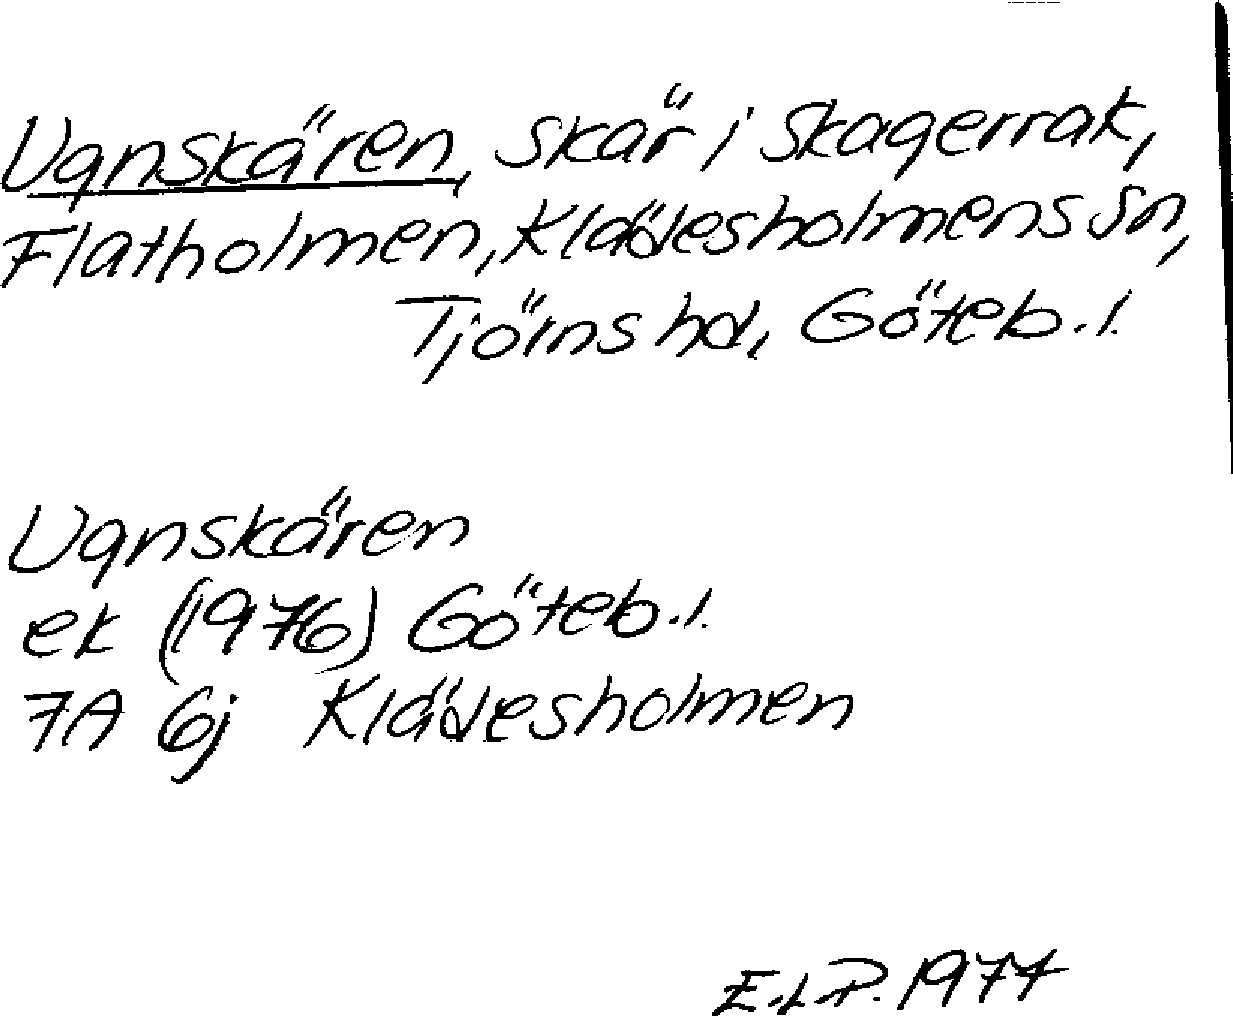 Ugnskären, skär i Skagerrak,
Flatholmen, Klädesholmens sn,
Tjörns hd, Göteb. l.
Ugnskären
ek (1976) Göteb. l.
7A 6j Klädesholmen
E.L.P. 1977